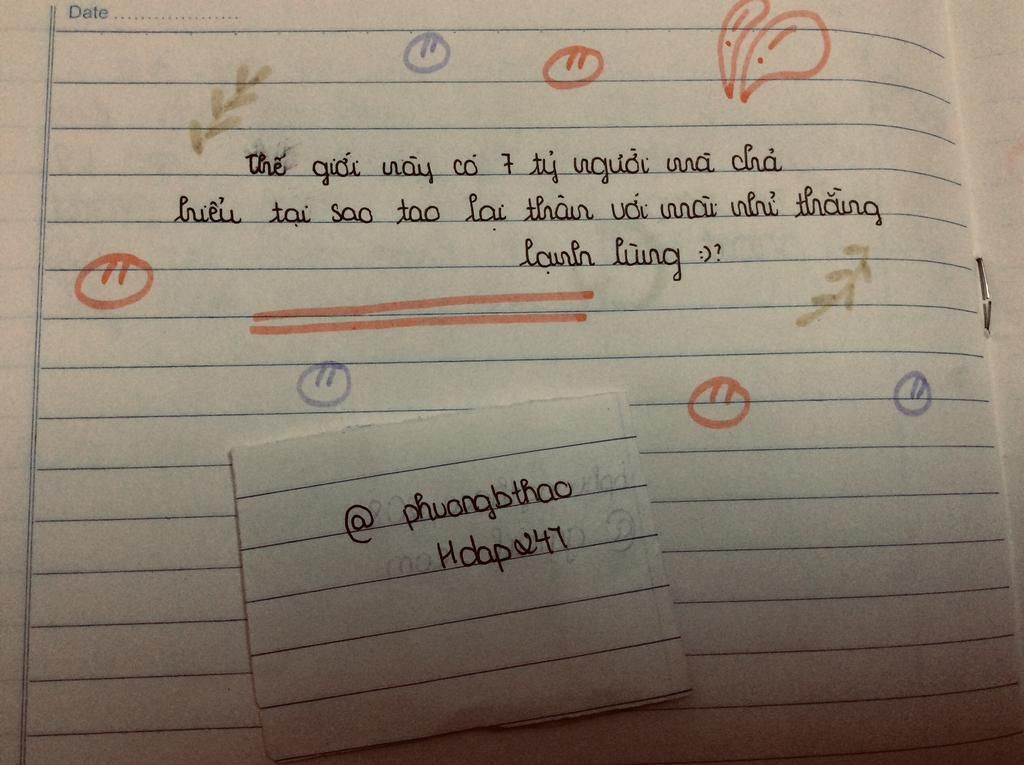 Date ....................
Thế giới này có 7 tỷ người mà chả
hiểu tại sao tao lại thân với mài nhỉ thằng
lạnh lùng :)?
@ phuongbthao
Hdap247